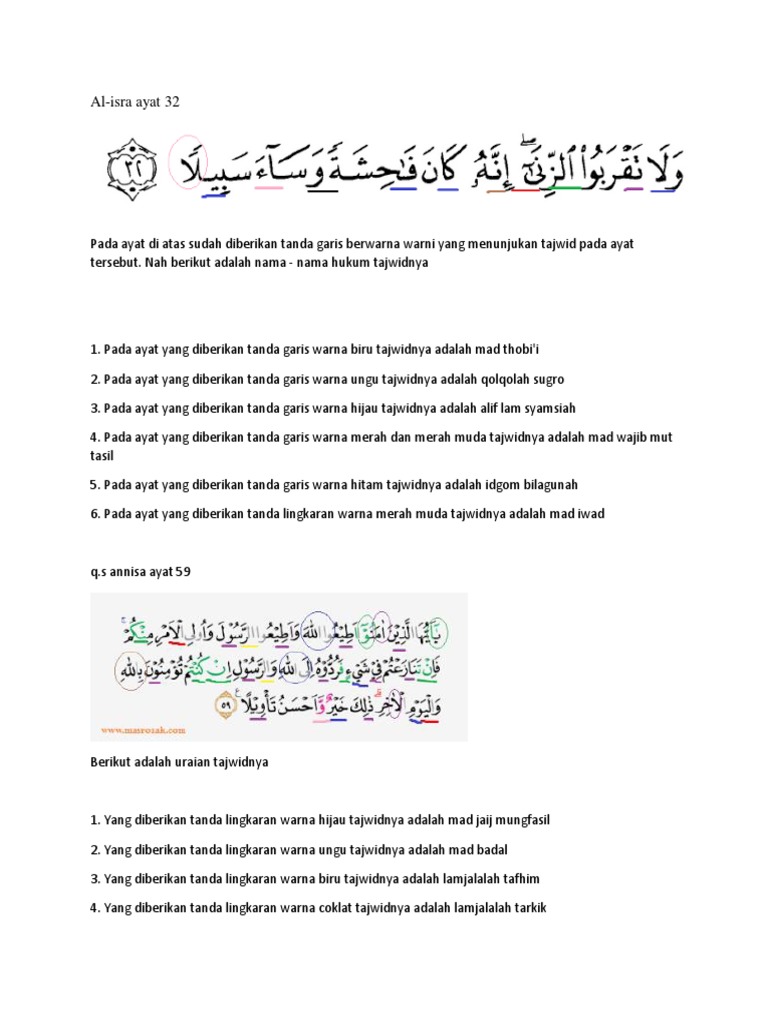 Al-isra ayat 32
وَلَا تَقْرَبُوا۟ ٱلزِّنَىٰٓ ۖ إِنَّهُۥ كَانَ فَـٰحِشَةً وَسَآءَ سَبِيلًا ٣٢
Pada ayat di atas sudah diberikan tanda garis berwarna warni yang menunjukan tajwid pada ayat
tersebut. Nah berikut adalah nama - nama hukum tajwidnya
1. Pada ayat yang diberikan tanda garis warna biru tajwidnya adalah mad thobi'i
2. Pada ayat yang diberikan tanda garis warna ungu tajwidnya adalah qolqolah sugro
3. Pada ayat yang diberikan tanda garis warna hijau tajwidnya adalah alif lam syamsiah
4. Pada ayat yang diberikan tanda garis warna merah dan merah muda tajwidnya adalah mad wajib mut
tasil
5. Pada ayat yang diberikan tanda garis warna hitam tajwidnya adalah idgom bilagunah
6. Pada ayat yang diberikan tanda lingkaran warna merah muda tajwidnya adalah mad iwad
q.s annisa ayat 59
يٰٓاَيُّهَا الَّذِيْنَ اٰمَنُوْٓا اَطِيْعُوا اللّٰهَ وَاَطِيْعُوا الرَّسُوْلَ وَاُولِى الْاَمْرِ مِنْكُمْۚ
فَاِنْ تَنَازَعْتُمْ فِيْ شَيْءٍ فَرُدُّوْهُ اِلَى اللّٰهِ وَالرَّسُوْلِ اِنْ كُنْتُمْ تُؤْمِنُوْنَ بِاللّٰهِ
وَالْيَوْمِ الْاٰخِرِۗ ذٰلِكَ خَيْرٌ وَّاَحْسَنُ تَأْوِيْلًا ٥٩
www.masrozak.com
Berikut adalah uraian tajwidnya
1. Yang diberikan tanda lingkaran warna hijau tajwidnya adalah mad jaij mungfasil
2. Yang diberikan tanda lingkaran warna ungu tajwidnya adalah mad badal
3. Yang diberikan tanda lingkaran warna biru tajwidnya adalah lamjalalah tafhim
4. Yang diberikan tanda lingkaran warna coklat tajwidnya adalah lamjalalah tarkik